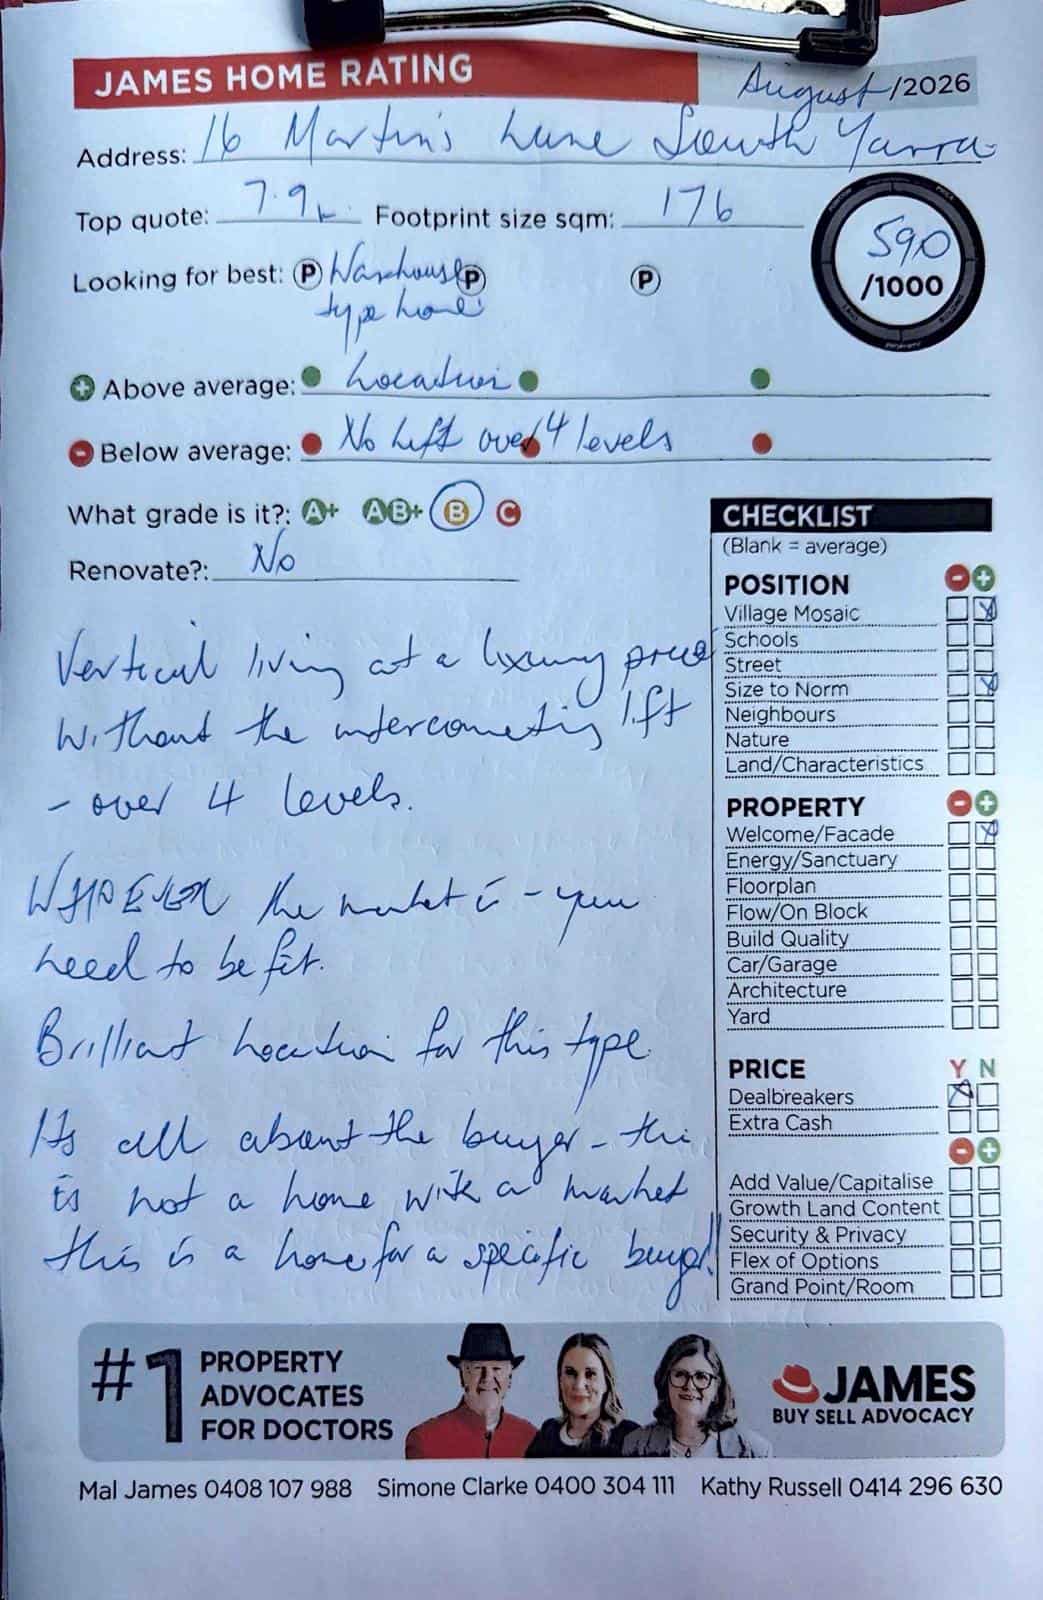 JAMES HOME RATING
August/2026
Address: 16 Martin's Lane South Yarra
Top quote: 7.9 Footprint size sqm: 176
590
/1000
Looking for best: P Warehouse P P
type home
Above average: Location
Below average: No Lift over 4 levels
What grade is it?: A+ AB+ B C
Renovate?: No
Vertical living at a luxury price
without the interconnecting lift
- over 4 levels.
the market is - you
need to be fit.
Brilliant Location for this type.
Its all about the buyer - this
is not a home with a market
this is a home for a specific buyer!!
CHECKLIST
(Blank = average)
POSITION - +
Village Mosaic
Schools
Street
Size to Norm
Neighbours
Nature
Land/Characteristics
PROPERTY - +
Welcome/Facade
Energy/Sanctuary
Floorplan
Flow/On Block
Build Quality
Car/Garage
Architecture
Yard
PRICE Y N
Dealbreakers
Extra Cash
- +
Add Value/Capitalise
Growth Land Content
Security & Privacy
Flex of Options
Grand Point/Room
#1 PROPERTY
ADVOCATES
FOR DOCTORS
JAMES
BUY SELL ADVOCACY
Mal James 0408 107 988 Simone Clarke 0400 304 111 Kathy Russell 0414 296 630